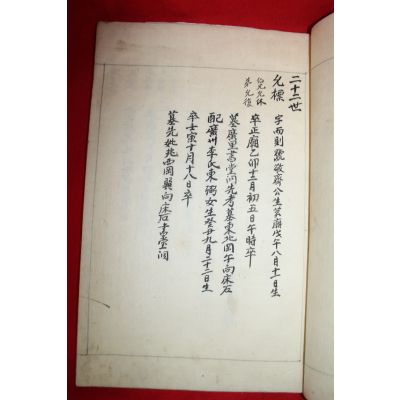 二十二世
允標
伯兄允休
弟允復
字而則號敬齋公生英廟戊午八月十一日生
卒正廟乙卯十二月初五日午時卒
墓廣里書堂洞先考墓東北岡午向床石
配廣州李氏東弼女生癸丑九月二十二日生
卒壬寅十月十八日卒
墓先妣兆西岡巽向床石書堂洞